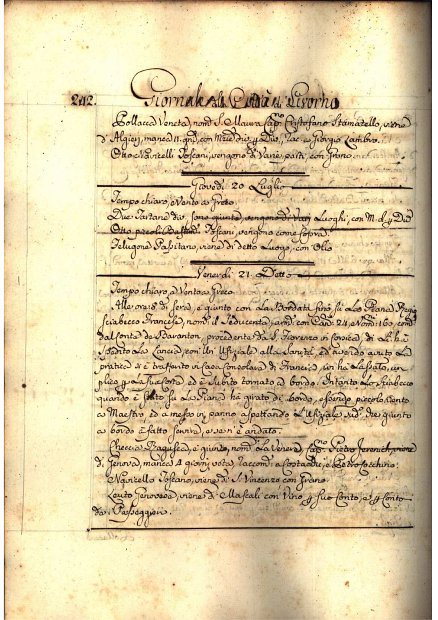 242. Giornale della Città di Livorno
Pollacca Veneta, nom.ª S. Maura Cap.no Cristofano Stamatello, viene
d'Algieri, manca 11. gni, con a Giorgio Lambro.
Otto Navicelli Toscani, vengono di Varie parti, con Grano.
Giovedì 20 Luglio
Tempo chiaro, e Vento a Greco.
Due Tartane sono giunte, vengono di Vari Luoghi, con M. d. p. Div.
Otto piccoli Bastim. Toscani, vengono come Sopra.
Felugone Pasitano, viene di detto Luogo, con Olio
Venerdì 21 Detto
Tempo chiaro, e Vento a Greco
Alle ore 18 di sera, è giunto con La Bordata Sino su La Piana
Sciabecco Francese, nom.º il Seducente, arm. con Can. 24, e Nomi 160, com.
dal Conte de procedente da S. Fiorenzo in Corsica, di Là
Spedito La Lancia, con Un Uffiziale alla Sanità, ed avendo avuto La
pratica s'è trasferito in Casa Consolava di Francia, in ha Lasciato, un
plico p. La Sua Corte ed è Subito tornato a bordo. Intanto Lo Sciabecco
quando è Stato su La Piana ha girato di bordo, essendo piccolo Vento
a Maestro ed a messo in panno aspettando L'Uffiziale sud.º che giunto
a bordo è fatto e se n'è andato.
Checcia Ragusea, è giunta, nom.ª La Venera, Cap.no Pietro viene
di Genova, manca 4 giorni vota, racc. a Costantino, e Pietro
Navicello Toscano, viene di S. Vincenzo con Grano
Leuto Genovese, viene di Mascali con Vino p. suo Conto, e p. Conto
de Passeggieri